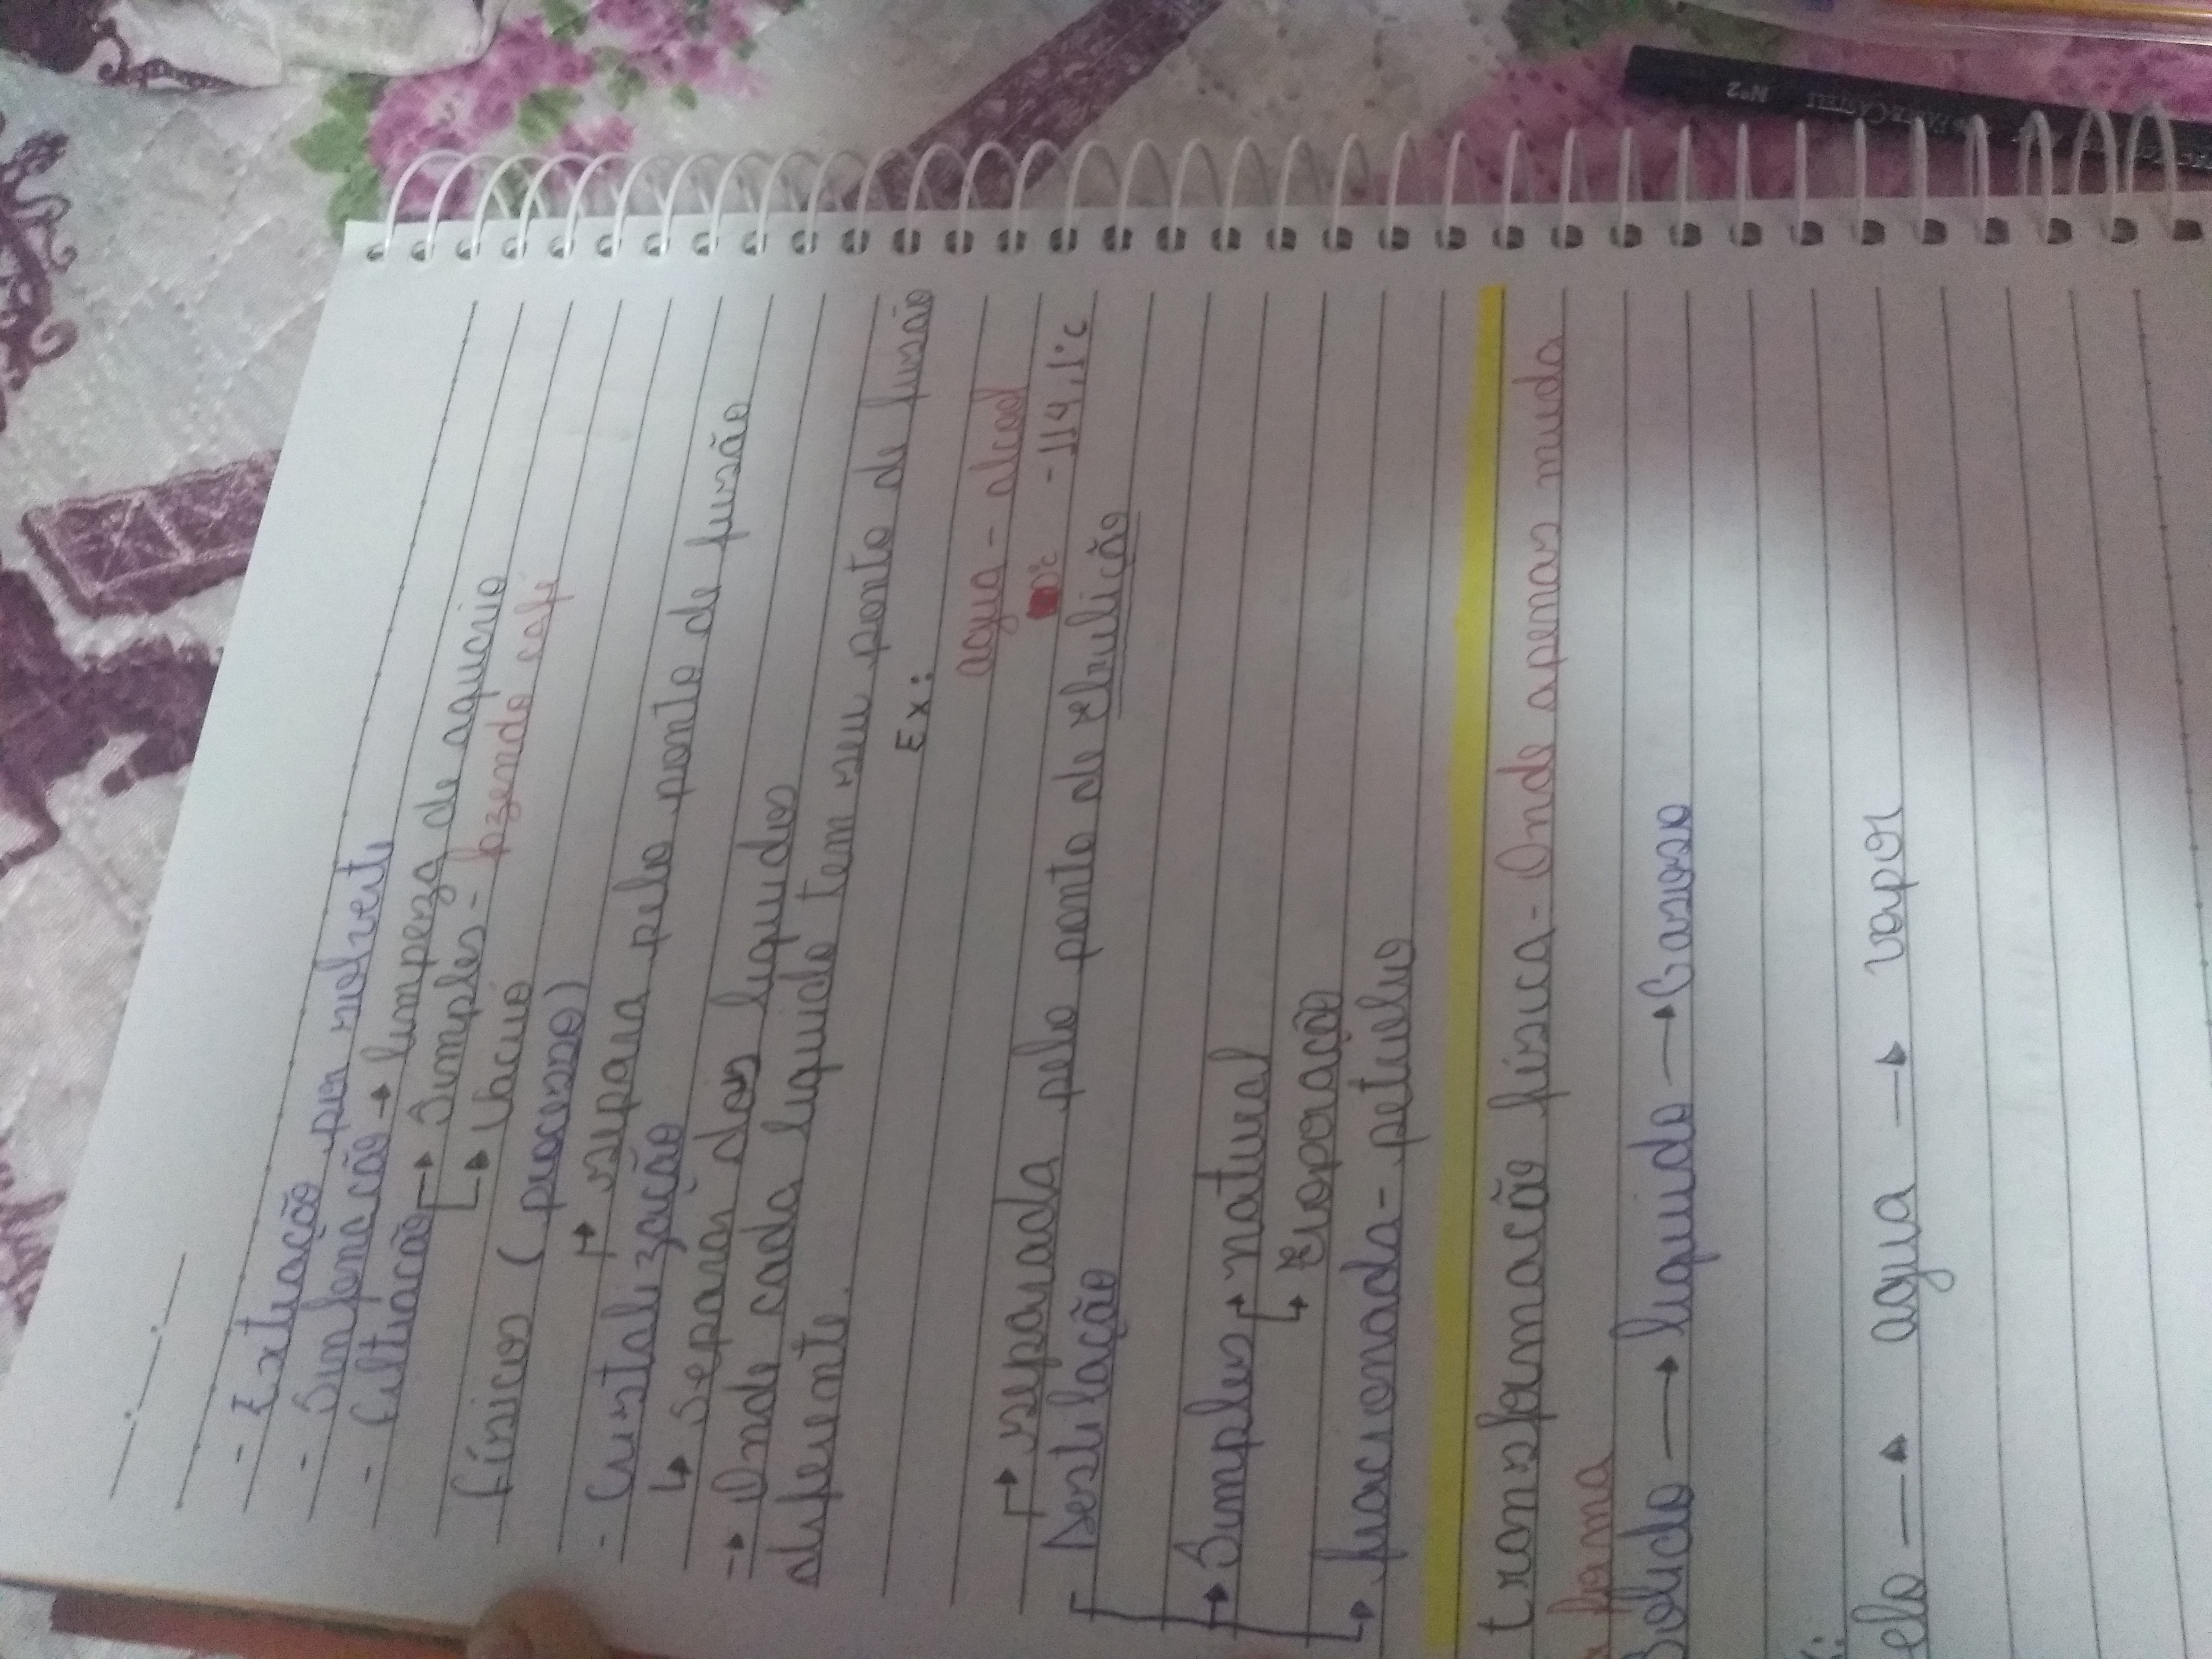 - Extração por solvente
- Sinfonação → limpeza de aquario
- Filtração → Simples - fazendo café
→ Vacuo
físicos (processo)
→ separa pelo ponto de fusão
- Cristalização
↳ Separar dos liquidos
→ Onde cada liquido tem seu ponto de fusão
diferente.
Ex:
agua - alcool
-114,1°c
→ separada pelo ponto de ebulição
Destilação
→ Simples → natural
↳ Evoporação
↳ fracionada - petroleo
transformação física - Onde apenas muda
forma
Solido → liquido → Gasoso
elo → agua → vapor
Nº2
FABER CASTELL